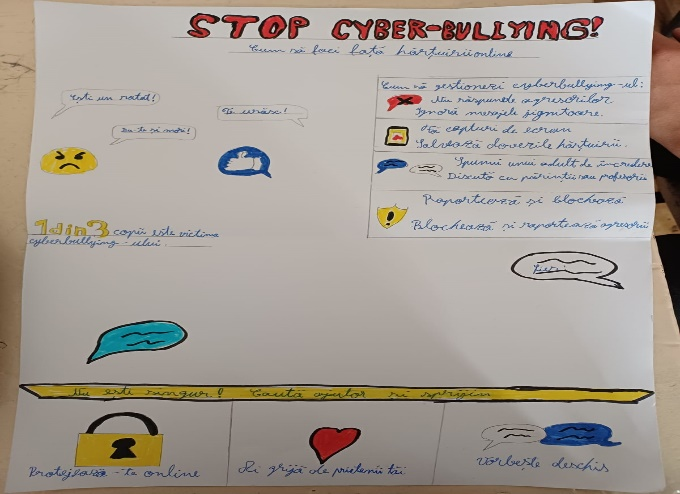 STOP CYBER-BULLYING!
Cum să faci față hărțuirii online
Ești un ratat!
Du-te și mori!
Te urăsc!
Cum să gestionezi cyberbullying-ul:
Nu răspunde agresorilor
Ignoră mesajele jignitoare.
Fă capturi de ecran
Salvează dovezile hărțuirii.
Spunui unui adult de încredere
Discută cu părinții sau profesorii
Raportează și blochează
Blochează și raportează agresorii
1 din 3 copii este victima
cyberbullying-ului.
Nu ești singur! Caută ajutor și sprijin
Protejează-te online
Ai grijă de prietenii tăi
Vorbește deschis